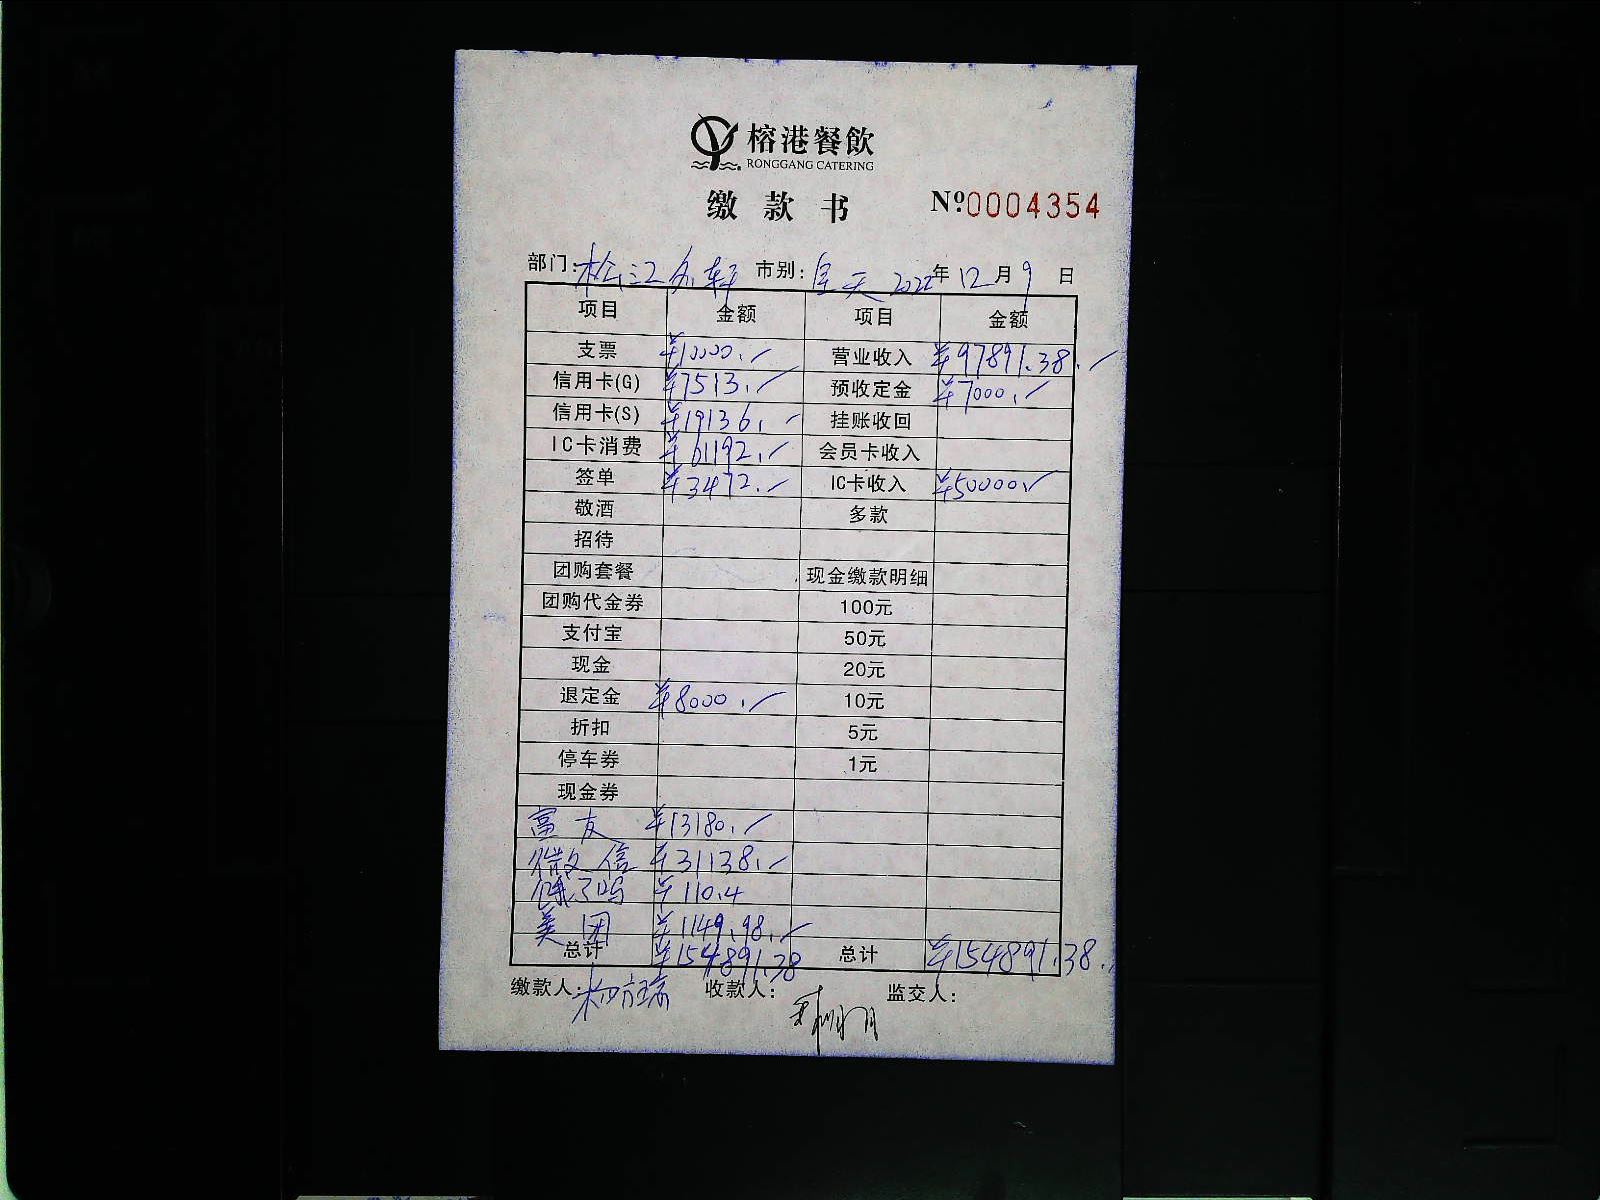 榕港餐飲
RONGGANG CATERING
缴款书 №0004354
部门: 松江 轩 市别: 全天 2022年12月9日
项目 金额 项目 金额
支票 ¥10000. 营业收入 ¥97891.38.
信用卡(G) ¥7513. 预收定金 ¥7000.
信用卡(S) ¥19136. 挂账收回
IC卡消费 ¥61192. 会员卡收入
签单 ¥3472. IC卡收入 ¥50000
敬酒 多款
招待
团购套餐 现金缴款明细
团购代金券 100元
支付宝 50元
现金 20元
退定金 ¥8000. 10元
折扣 5元
停车券 1元
现金券
富友 ¥13180.
微信 ¥31138.
饿了吗 ¥110.4
美团 ¥1149.98.
总计 ¥154891.38 总计 ¥154891.38.
缴款人: 收款人: 监交人: